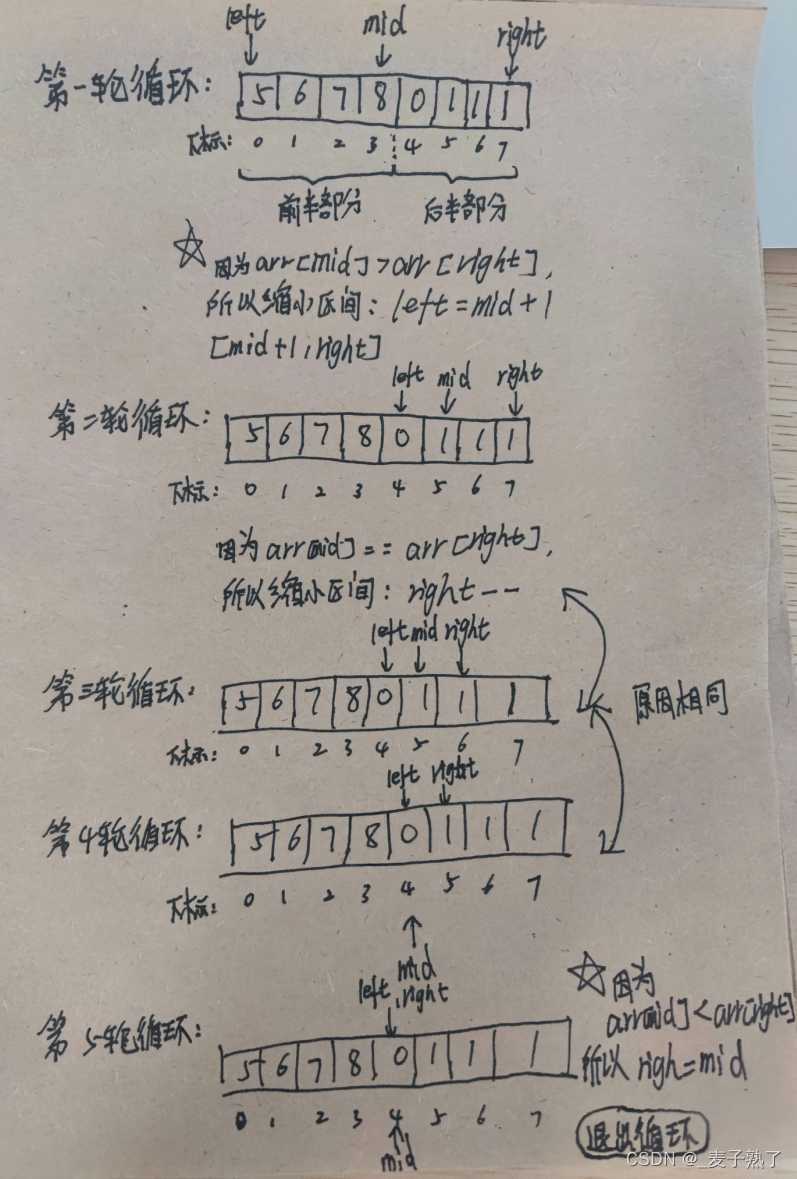 left mid right
第一轮循环: 5 6 7 8 0 1 1 1
下标: 0 1 2 3 4 5 6 7
前半部分 后半部分
☆因为arr[mid]>arr[right],
所以缩小区间: left=mid+1
[mid+1,right]
left mid right
第二轮循环: 5 6 7 8 0 1 1 1
下标: 0 1 2 3 4 5 6 7
因为arr[mid]==arr[right],
所以缩小区间: right--
left mid right
第三轮循环: 5 6 7 8 0 1 1 1
原因相同
下标: 0 1 2 3 4 5 6 7
left right
第4轮循环: 5 6 7 8 0 1 1 1
下标: 0 1 2 3 4 5 6 7
mid
left,right
☆因为
arr[mid]<arr[right]
第5轮循环: 5 6 7 8 0 1 1 1
所以 righ=mid
0 1 2 3 4 5 6 7
mid
退出循环
CSDN @_麦子熟了